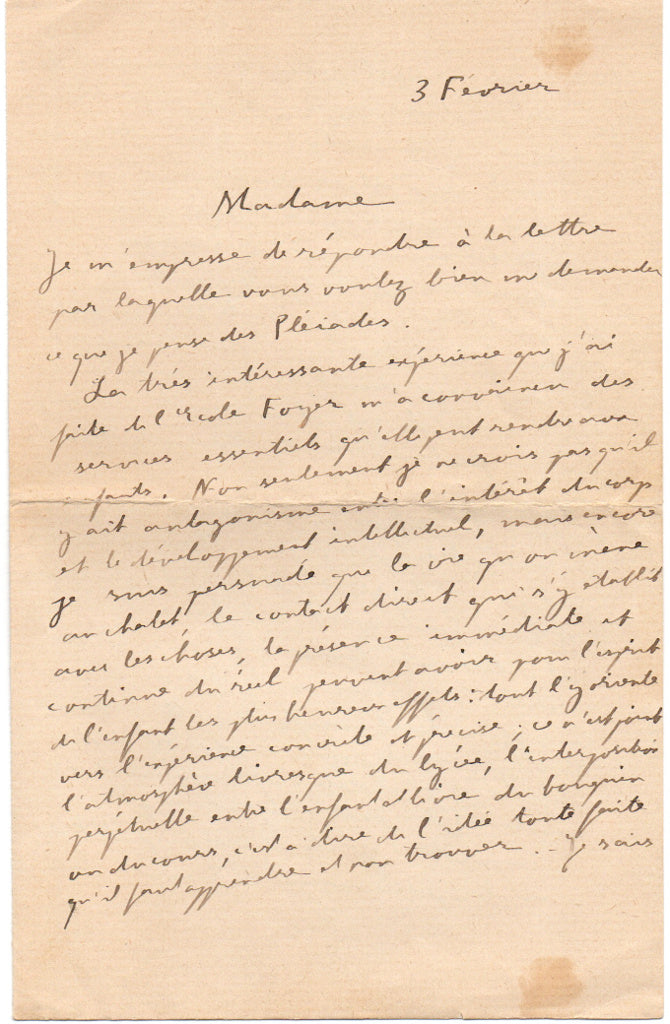 3 Février
Madame
Je m'empresse de répondre à la lettre
par laquelle vous voulez bien me demander
ce que je pense des Pléiades.
La très intéressante expérience que j'ai
faite de l'Ecole Foyer m'a convaincu des
services essentiels qu'elle peut rendre aux
enfants. Non seulement je ne crois pas qu'il
y ait antagonisme entre l'intérêt du corps
et le développement intellectuel, mais encore
je suis persuadé que la vie qu'on mène
au chalet, le contact direct qui s'y établit
avec les choses, la présence immédiate et
continue du réel peuvent avoir pour l'esprit
de l'enfant les plus heureux effets : tout l'y oriente
vers l'expérience concrète et précise ; ce n'est point
l'atmosphère livresque du lycée, l'interposition
perpétuelle entre l'enfant et la vie du bouquin
ou du cours, c'est à dire de l'idée toute faite
qu'il faut apprendre et non trouver. - Je sais